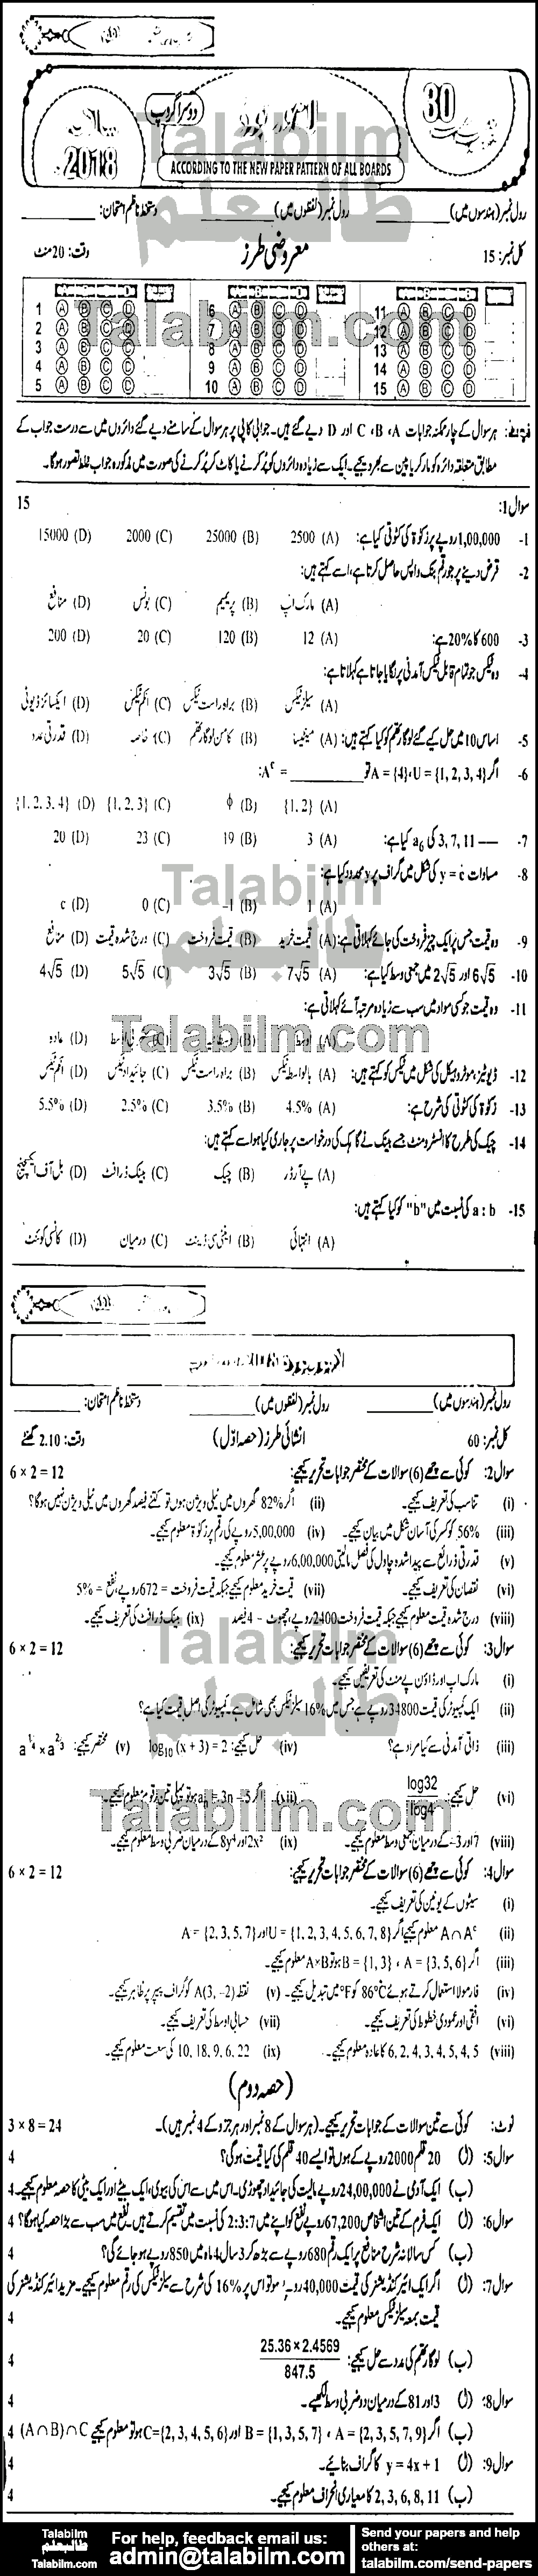 دوسرا گروپ
سال 2018
30
ACCORDING TO THE NEW PAPER PATTERN OF ALL BOARDS
رول نمبر (ہندسوں میں) ________ رول نمبر (لفظوں میں) ________ دستخط ناظم امتحان: ________
کل نمبر: 15 معروضی طرز وقت: 20 منٹ
1 A B C D 6 A B C D 11 A B C D
2 A B C D 7 A B C D 12 A B C D
3 A B C D 8 A B C D 13 A B C D
4 A B C D 9 A B C D 14 A B C D
5 A B C D 10 A B C D 15 A B C D
نوٹ: ہر سوال کے چار ممکنہ جوابات A، B، C اور D دیے گئے ہیں۔ جوابی کاپی پر ہر سوال کے سامنے دیے گئے دائروں میں سے درست جواب کے
مطابق متعلقہ دائرہ کو مارکر یا پین سے بھر دیجیے۔ ایک سے زیادہ دائروں کو پُر کرنے یا کاٹ کر پُر کرنے کی صورت میں مذکورہ جواب غلط تصور ہوگا۔
سوال 1: 15
1- 1,00,000 روپے پر زکوٰۃ کی کٹوتی کیا ہے: (A) 2500 (B) 25000 (C) 2000 (D) 15000
2- قرض دینے پر جو رقم بنک واپس حاصل کرتا ہے، اسے کہتے ہیں:
(A) مارک اپ (B) پریمیم (C) بونس (D) منافع
3- 600 کا 20% ہے: (A) 12 (B) 120 (C) 20 (D) 200
4- وہ ٹیکس جو تمام قابل ٹیکس آمدنی پر لگایا جاتا ہے کہلاتا ہے:
(A) سیلز ٹیکس (B) براہ راست ٹیکس (C) انکم ٹیکس (D) ایکسائز ڈیوٹی
5- اساس 10 میں حل کیے گئے لوگارتھم کو کیا کہتے ہیں: (A) مینٹیسا (B) کامن لوگارتھم (C) خاصہ (D) قدرتی عدد
6- اگر A = {4}، U = {1, 2, 3, 4} تو ________ = Aᶜ:
(A) {1, 2} (B) ϕ (C) {1, 2, 3} (D) {1, 2, 3, 4}
7- 3, 7, 11 ---- کی a₆ کیا ہے: (A) 3 (B) 19 (C) 23 (D) 20
8- مساوات y = c کی شکل میں گراف پر y محدد کیا ہے:
(A) 1 (B) –1 (C) 0 (D) c
9- وہ قیمت جس پر ایک چیز فروخت کی جائے کہلاتی ہے: (A) قیمت خرید (B) قیمت فروخت (C) درج شدہ قیمت (D) منافع
10- 6√5 اور 2√5 میں جمعی وسط کیا ہے: (A) 7√5 (B) 3√5 (C) 5√5 (D) 4√5
11- وہ قیمت جو کسی مواد میں سب سے زیادہ مرتبہ آئے کہلاتی ہے:
(A) اوسط (B) (C) (D) عادہ
12- ڈیوٹیز، موٹر وہیکل کی شکل میں ٹیکس کو کہتے ہیں: (A) بالواسطہ ٹیکس (B) براہ راست ٹیکس (C) جائیداد ٹیکس (D) انکم ٹیکس
13- زکوٰۃ کی کٹوتی کی شرح ہے: (A) 4.5% (B) 3.5% (C) 2.5% (D) 5.5%
14- چیک کی طرح کا انسٹرومنٹ جسے بینک نے گاہک کی درخواست پر جاری کیا ہو اسے کہتے ہیں:
(A) پے آرڈر (B) چیک (C) بینک ڈرافٹ (D) بل آف ایکسچینج
15- a : b کی نسبت میں "b" کو کیا کہتے ہیں:
(A) انتہائی (B) اینٹی سی ڈینٹ (C) درمیان (D) کانسی کوئنٹ
رول نمبر (ہندسوں میں) ________ رول نمبر (لفظوں میں) ________ دستخط ناظم امتحان: ________
کل نمبر: 60 انشائی طرز (حصہ اوّل) وقت: 2.10 گھنٹے
سوال 2: کوئی سے چھے (6) سوالات کے مختصر جوابات تحریر کیجیے: 6 x 2 = 12
(i) تناسب کی تعریف کیجیے۔ (ii) اگر 82% گھروں میں ٹیلی ویژن ہوں تو کتنے فیصد گھروں میں ٹیلی ویژن نہیں ہوگا؟
(iii) 56% کو کسر کی آسان شکل میں بیان کیجیے۔ (iv) 5,00,000 روپے کی رقم پر زکوٰۃ معلوم کیجیے۔
(v) قدرتی ذرائع سے پیدا شدہ چاول کی فصل مالیتی 6,00,000 روپے پر عشر معلوم کیجیے۔
(vi) نقصان کی تعریف کیجیے۔ (vii) قیمت خرید معلوم کیجیے جبکہ قیمت فروخت = 672 روپے، نفع = 5%
(viii) درج شدہ قیمت معلوم کیجیے جبکہ قیمت فروخت 2400 روپے، چھوٹ - 4 فیصد (ix) بینک ڈرافٹ کی تعریف کیجیے۔
سوال 3: کوئی سے چھے (6) سوالات کے مختصر جوابات تحریر کیجیے: 6 x 2 = 12
(i) مارک اپ اور ڈاؤن پے منٹ کی تعریفیں کیجیے۔
(ii) ایک کمپیوٹر کی قیمت 34800 روپے ہے جس میں 16% سیلز ٹیکس بھی شامل ہے۔ کمپیوٹر کی اصل قیمت کیا ہے؟
(iii) ذاتی آمدنی سے کیا مراد ہے؟ (iv) حل کیجیے: log₁₀ (x + 3) = 2 (v) مختصر کیجیے: a^¼ × a^⅔
(vi) حل کیجیے: log32/log4 (vii) اگر aₙ = 3n – 5 ہو تو پہلی تین رقوم معلوم کیجیے۔
(viii) 7 اور 3- کے درمیان جمعی وسط معلوم کیجیے۔ (ix) 2x² اور 8y⁴ کے درمیان ضربی وسط معلوم کیجیے۔
سوال 4: کوئی سے چھے (6) سوالات کے مختصر جوابات تحریر کیجیے: 6 x 2 = 12
(i) سیٹوں کے یونین کی تعریف کیجیے۔
(ii) A ∩ Aᶜ معلوم کیجیے اگر U = {1, 2, 3, 4, 5, 6, 7, 8} اور A = {2, 3, 5, 7}
(iii) اگر A = {3, 5, 6}، B = {1, 3} ہو تو A×B معلوم کیجیے۔
(iv) فارمولا استعمال کرتے ہوئے 86°C کو °F میں تبدیل کیجیے۔ (v) نقطہ A(3, –2) کو گراف پیپر پر ظاہر کیجیے۔
(vi) افقی اور عمودی خطوط کی تعریف کیجیے۔ (vii) حسابی اوسط کی تعریف کیجیے۔
(viii) 6, 2, 4, 3, 4, 5, 4, 5 کا عادہ معلوم کیجیے۔ (ix) 10, 18, 9, 6, 22 کی سعت معلوم کیجیے۔
(حصہ دوم)
نوٹ: کوئی سے تین سوالات کے جوابات تحریر کیجیے۔ (ہر سوال کے 8 نمبر اور ہر جزو کے 4 نمبر ہیں)۔ 3 x 8 = 24
سوال 5: (ا) 20 قلم 2000 روپے کے ہوں تو ایسے 40 قلم کی کیا قیمت ہوگی؟ 4
(ب) ایک آدمی نے 24,00,000 روپے مالیت کی جائیداد چھوڑی۔ اس میں سے اس کی بیوی، ایک بیٹے اور ایک بیٹی کا حصہ معلوم کیجیے۔ 4
سوال 6: (ا) ایک فرم کے تین اشخاص 67,200 روپے نفع کو اپنے میں 2:3:7 کی نسبت میں تقسیم کرتے ہیں۔ نفع میں سب سے بڑا حصہ کیا ہوگا؟ 4
(ب) کس سالانہ شرح منافع پر ایک رقم 680 روپے سے بڑھ کر 3 سال 4 ماہ میں 850 روپے ہو جائے گی؟ 4
سوال 7: (ا) اگر ایک ائیر کنڈیشنر کی قیمت 40,000 روپے ہو تو اس پر 16% کی شرح سے سیلز ٹیکس کی رقم معلوم کیجیے۔ مزید ائیر کنڈیشنر کی
قیمت بمعہ سیلز ٹیکس معلوم کیجیے۔ 4
(ب) لوگارتھم کی مدد سے حل کیجیے: 25.36 × 2.4569 / 847.5 4
سوال 8: (ا) 3 اور 81 کے درمیان دو ضربی وسط لکھیے۔ 4
(ب) اگر A = {2, 3, 5, 7, 9}، B = {1, 3, 5, 7} اور C={2, 3, 4, 5, 6} ہو تو معلوم کیجیے (A∩B)∩C 4
سوال 9: (ا) y = 4x + 1 کا گراف بنائیے۔ 4
(ب) 2, 3, 6, 8, 11 کا معیاری انحراف معلوم کیجیے۔ 4
Talabilm
طالبعلم
Talabilm.com
Talabilm
Talabilm.com
Talabilm
طالبعلم
Talabilm.com
Talabilm
طالبعلم
Talabilm.com
For help, feedback email us:
admin@talabilm.com
Send your papers and help
others at:
talabilm.com/send-papers